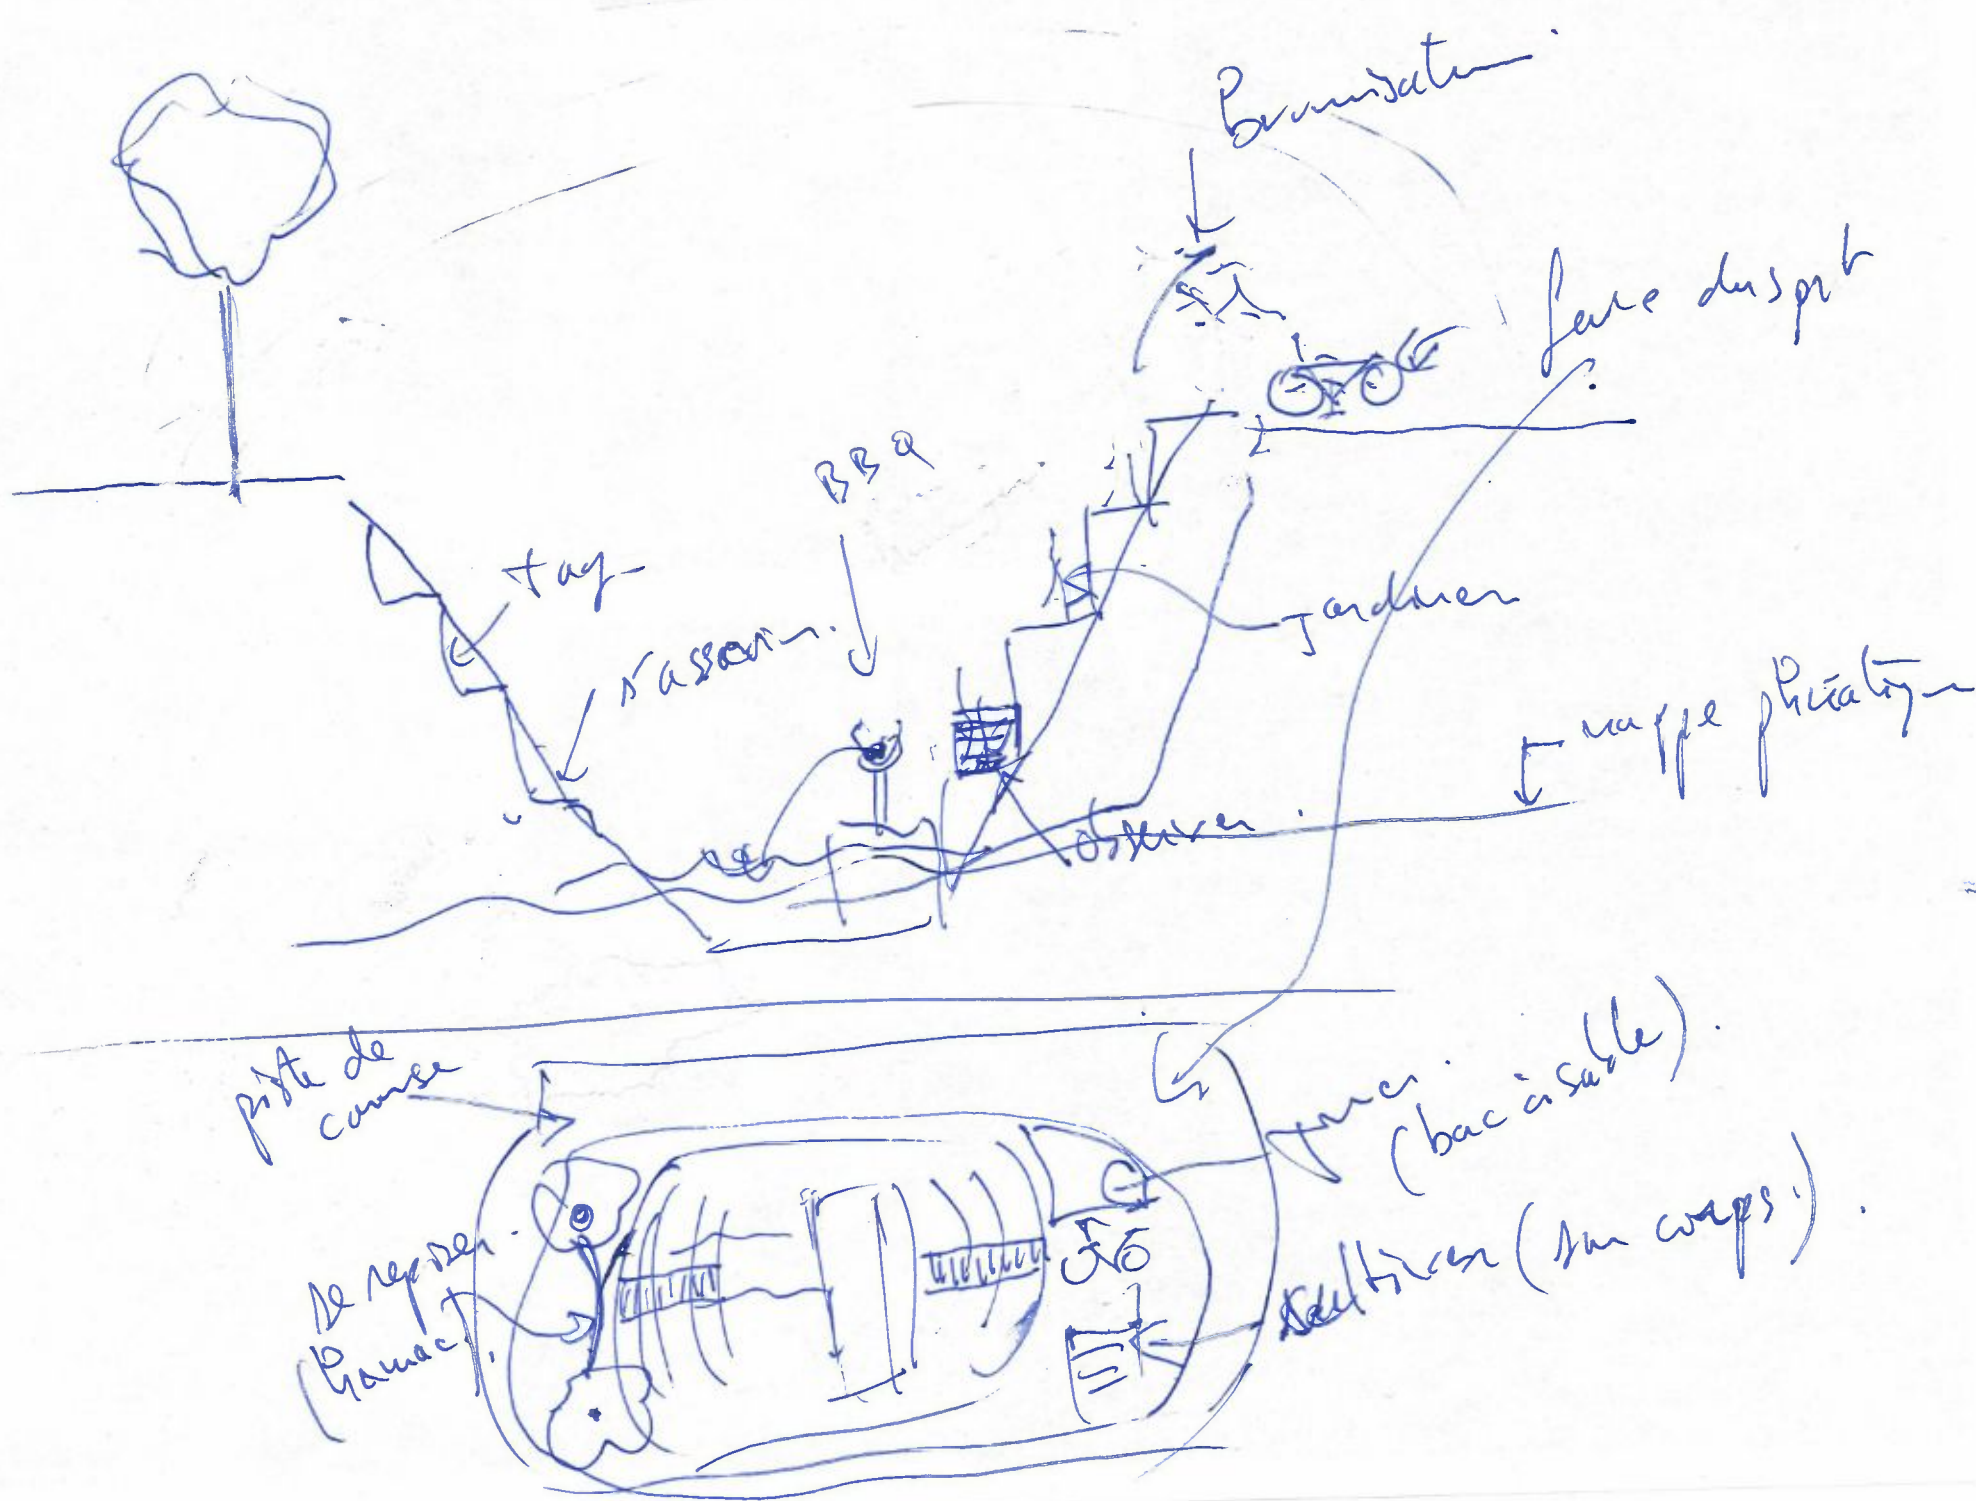 Brumisateur
faire du sport
BBQ
tag
s'asseoir.
jardiner
nappe phréatique
observer.
piste de
course
jouer.
(bac à sable).
se reposer.
(hamac).
cultiver (son corps).